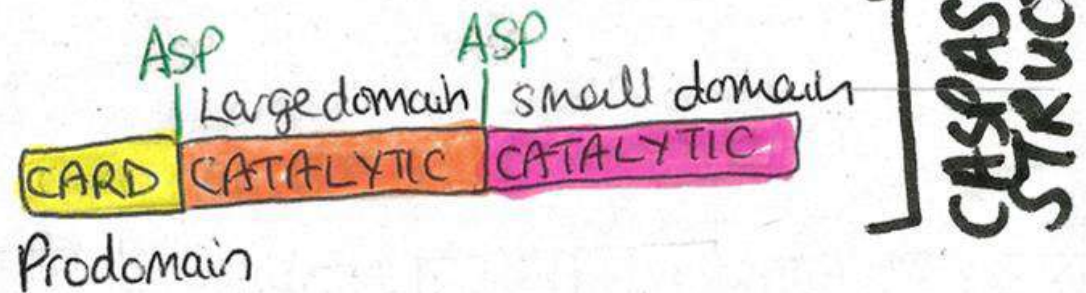 ASP ASP
Large domain small domain
CARD CATALYTIC CATALYTIC
Prodomain
CASPAS
STRUC